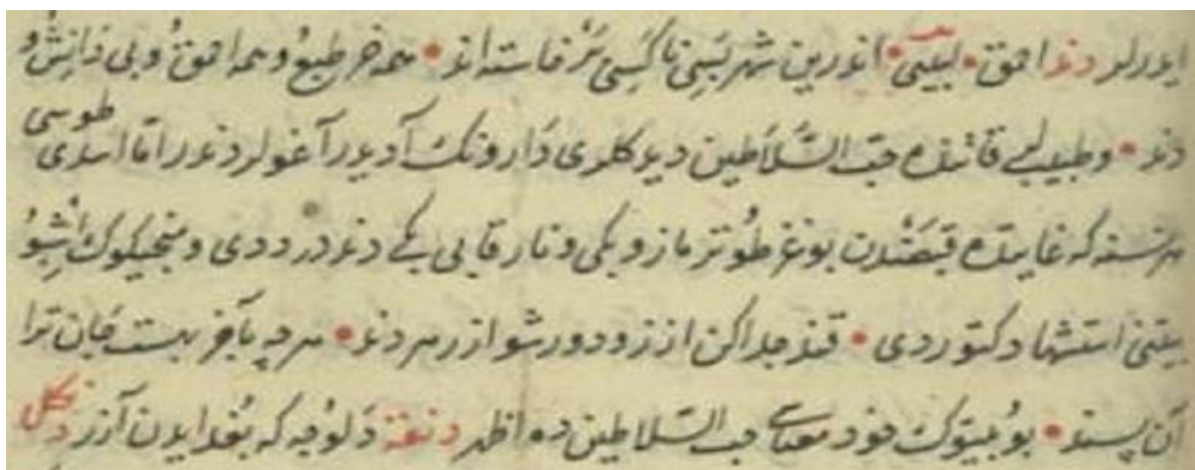 ایدرلر دند احمق • لبیبی • اندرین شهر بسی ناکس برخاسته اند • همه خر طبع و همه احمق و بی دانش و
دند • و طبیبلر قاتنده حب السلاطین دیدکلری دارونك آدیدر آغولر دندر امّا اسدی طوسی
هر نسنه که غایتده قبضندن بوغز طوتر مازو کبی و نار قابی کبی دند در ددی و منجیكوك اشبو
بیتنی استشهاد کتوردی • قند جدا کن از زو دور شو از زهر دند • هر چه بآخر بهست جان ترا
آن پسند • بو بیتوك خود معناسی حب السلاطین ده اظهر دنقه دلوفه که بغدایدن آزر دنکل